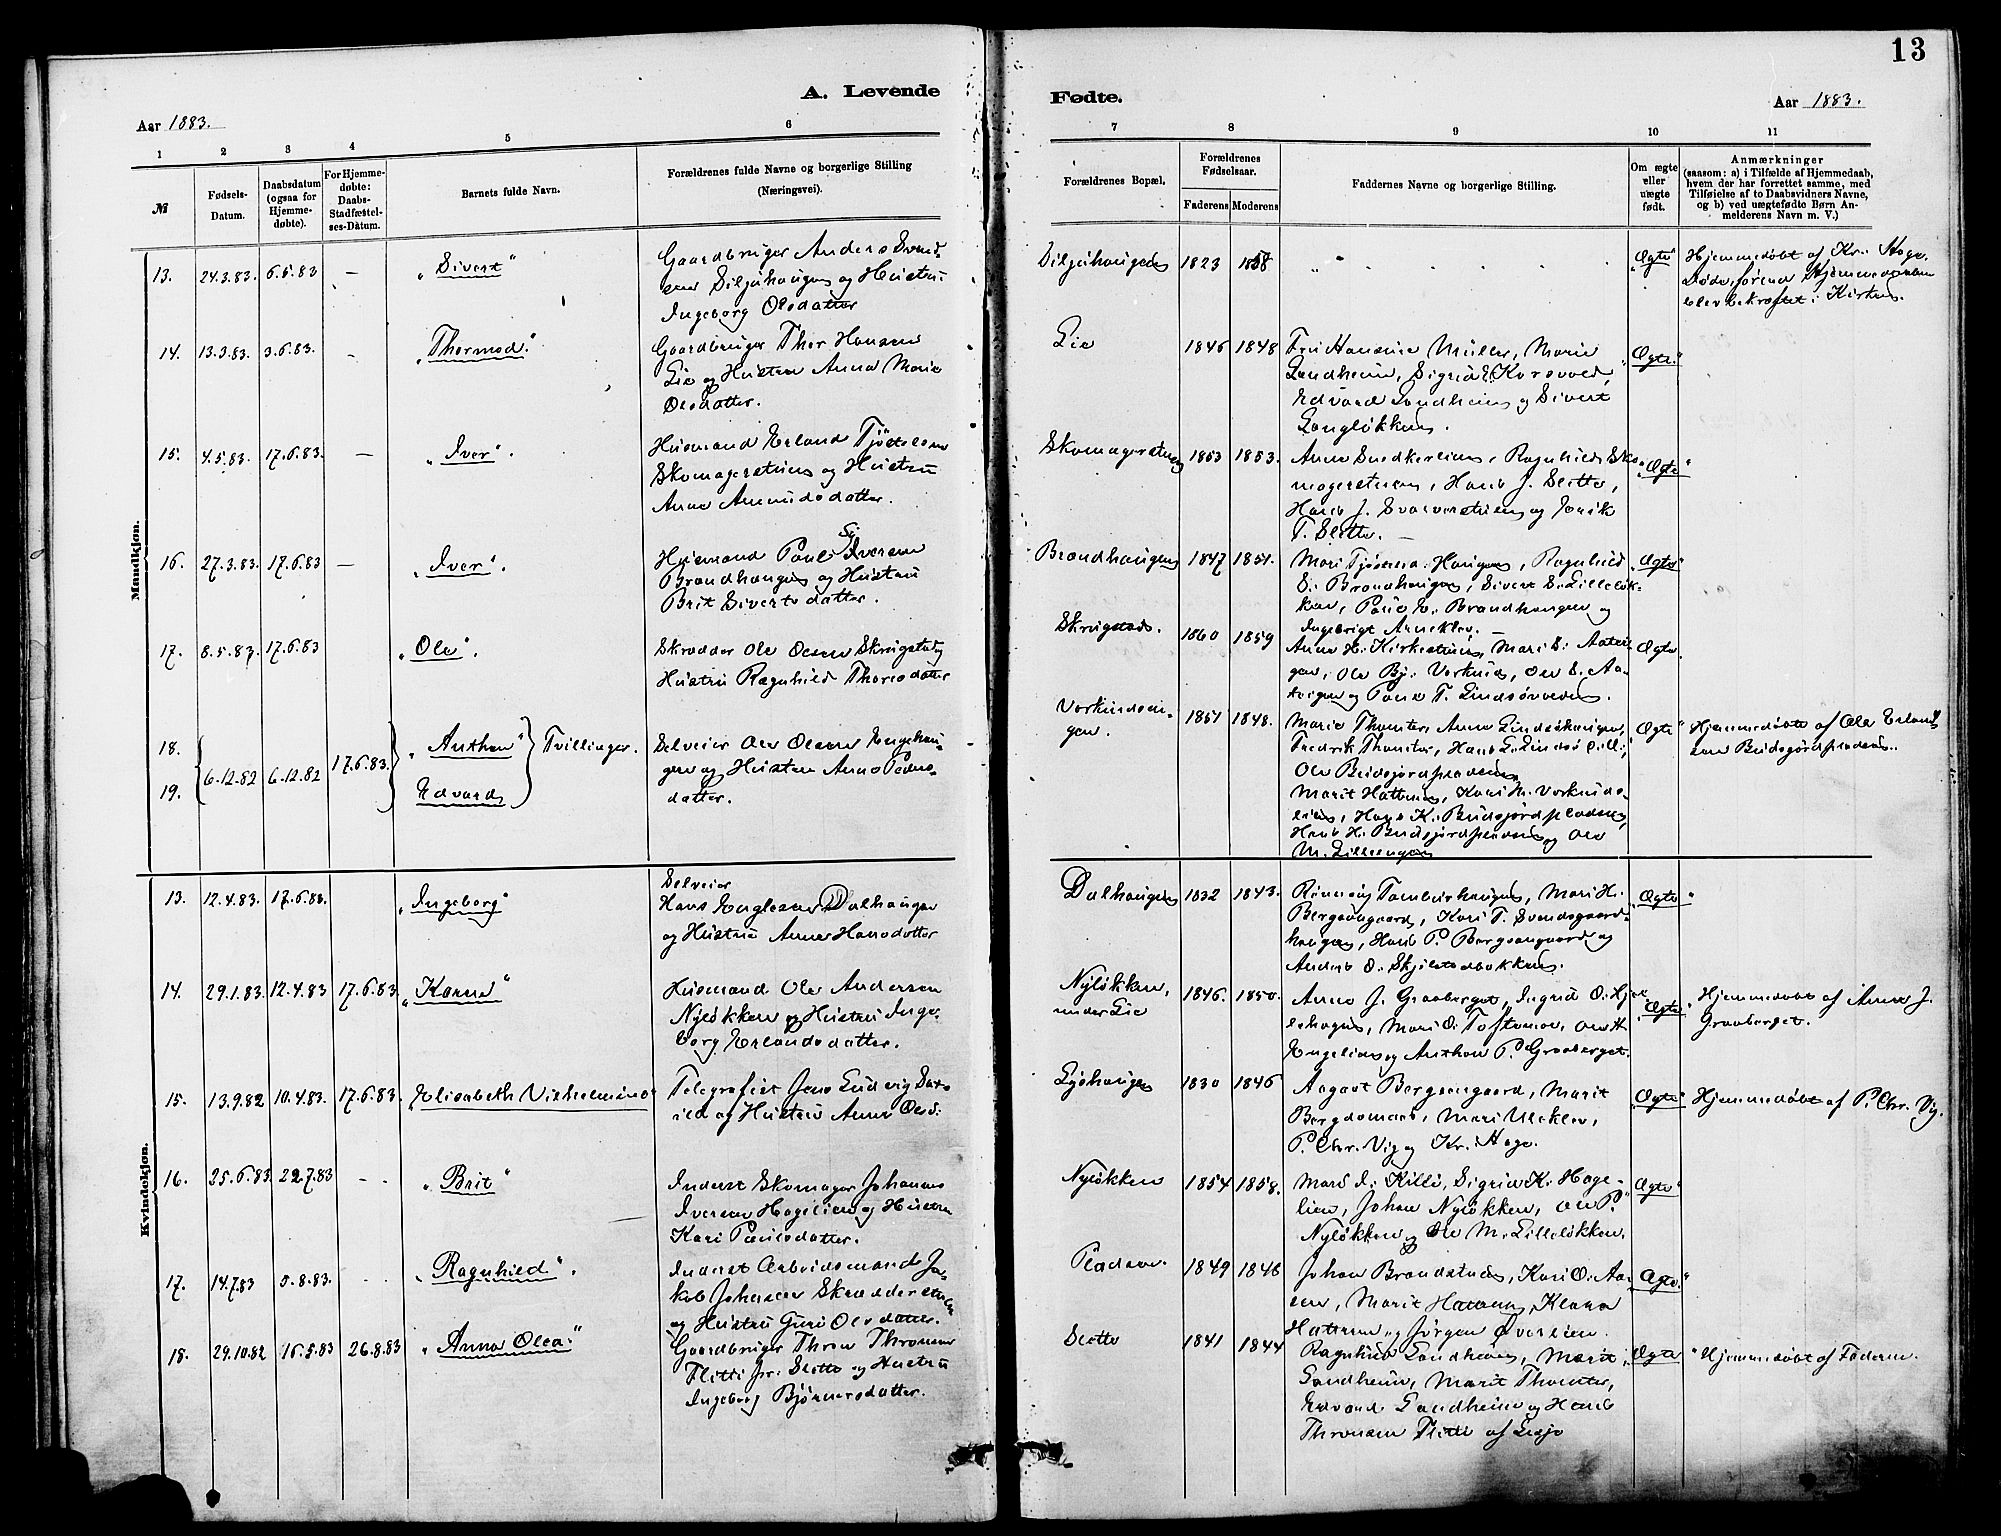 13
A. Levende
Fødte.
Aar 1883.
Aar 1883.
1 2 3 4 5 6 7 8 9 10 11
№
Fødsels-
Datum.
Daabsdatum
(ogsaa for
Hjemme-
døbte).
For Hjemme-
døbte:
Daabs-
Stadfæstel-
ses-Datum.
Barnets fulde Navn.
Forældrenes fulde Navne og borgerlige Stilling
(Næringsvei).
Forældrenes Bopæl.
Forældrenes
Fødselsaar.
Faderens Moderens
Faddernes Navne og borgerlige Stilling.
Om ægte
eller
uægte
født.
Anmærkninger
(saasom: a) i Tilfælde af Hjemmedaab,
hvem der har forrettet samme, med
Tilføielse af to Daabsvidners Navne,
og b) ved uægtefødte Børn An-
melderens Navn m. V.)
Mandkjøn.
13. 24.3.83. 6.5.83 — "Sivert"
Gaardbruger Anders Svend-
sen Siljuhaugen og Hustru
Ingeborg Olsdatter
Siljuhaugen 1823 1858 "Ægte"
Hjemmedøbt af Kr. Hage.
Døde, førend Hjemmedaaben
blev bekræftet i Kirken.
14. 13.3.83. 3.6.83. — "Thormod."
Gaardbruger Thor Hansen
Lie og Hustru Anna Marie
Olsdatter.
Lie 1846 1848
Fru Hansine Müller, Marie
Landheim, Sigrid E. Korsvold,
Edvard Landheim og Sivert
Langløkken.
"Ægte."
15. 4.5.83. 17.6.83. — "Iver".
Husmand Erland Tjøstelsen
Skomagerstuen og Hustru
Anne Amundsdatter.
Skomagerstuen 1853 1853.
Anne Snedkerlien, Ragnhild Sko-
magerstuen, Hans J. Slette,
Hans J. Svarverstuen og
T. Slette. —
"Ægte"
16. 27.3.83. 17.6.83 — "Iver".
Husmand Paul Iversen
Brandhaugen og Hustru
Brit Sivertsdatter.
Brandhaugen 1847 1851.
Mari Haugen, Ragnhild
S. Brandhaugen, Sivert S. Lilleløk-
ken, E. Brandhaugen og
Ingebrigt Arneklev. —
"Ægte"
17. 8.5.83. 17.6.83 "Ole".
Skrædder Ole Olsen Skrugstad og
Hustru Ragnhild Thorsdatter
Skrugstad. 1860 1859
Anne H. Kirkestuen, Mari
gen, Ole By. Vorkind, Ole
og T.
Ægte.
18.
19.
6.12.82 6.12.82 17.6.83.
"Anthon" Tvillinger.
Edvard
Selveier Ole Olsen Enghau-
gen og Hustru Anne Peders-
datter.
gen.
1851 1848.
Marie Thomter, Anne
Fredrik Thomter, Hans
Ole Budsjordpladsen,
Marit Hattrem, Kari M.
Hans K. Budsjordpladsen,
Hans H. Budsjordpladsen og Ole
M. Lilleengen
Ægte"
Hjemmedøbte af Ole Erland-
sen Budsjordpladsen.
Kvindekjøn.
13. 12.4.83. 17.6.83. "Ingeborg"
Selveier
Hans Englesen Dalhaugen
og Hustru Anne Hansdatter
Dalhaugen 1832 1843.
Rønnaug Tamburhaugen, Mari H.
Bergsengaard, Kari T. Svendsgaard-
haugen, Hans P. Bergsengaard og
Anders O. Skjelstadbakken.
"Ægte"
14. 29.1.83. 12.4.83 17.6.83. "Karen"
Husmand Ole Andersen
Nyløkken og Hustru Inge-
borg Erlandsdatter.
Nyløkken,
under Lie
1846. 1850.
Anne J. Graaberget, Ingrid O. Hjel-
lehagen, Mari O. Toftemoen, Ole H.
Englien og Anthon P. Graaberget.
"Ægte"
Hjemmedøbt af Anne J.
Graaberget.
15. 13.9.82 10.4.83. 17.6.83. Elisabeth Vilhelmine
Telegrafist Jens Ludvig
og Hustru Anne Olsd.
1830 1846
Aagaat Bergsengaard, Marit
Bergdemseb, Mari Ulekleiv,
P. Chr. Vig og Kr. Hage.
"Ægte"
Hjemmedøbt af P. Chr. Vig.
16. 25.6.83. 22.7.83 "Brit"
Inderst Skomager Johannes
Iversen Hagelien og Hustru
Kari Paulsdatter.
Nyløkken 1854 1858.
Mari I. Killi, Sigrid K. Hage-
lien, Johan Nyløkken, Ole P.
Nyløkken og Ole M. Lilleløkken.
Ægte"
17. 14.7.83 5.8.83. "Ragnhild".
Inderst Arbeidsmand Ja-
kob Johansen Skrædderstuen
og Hustru Guri Olsdatter.
Pladsen. 1849 1846
Johan Brandstuen, Kari O. Aa-
sen, Marit Hattrem, Klara
Hattrem og Jørgen Øverlien.
"Ægte."
18. 29.10.82 16.5.83 26.8.83 "Anne Olea."
Gaardbruger Thron Thronsen
Flitti pr. Slette og Hustru
Ingeborg Bjørnersdatter.
Slette 1841 1844
Ragnhild Landheim, Marit
Landheim, Marit Thomter,
Edvard Landheim og Hans
Thronsen Flitti af Lesje
"Ægte"
Hjemmedøbt af Faderen.